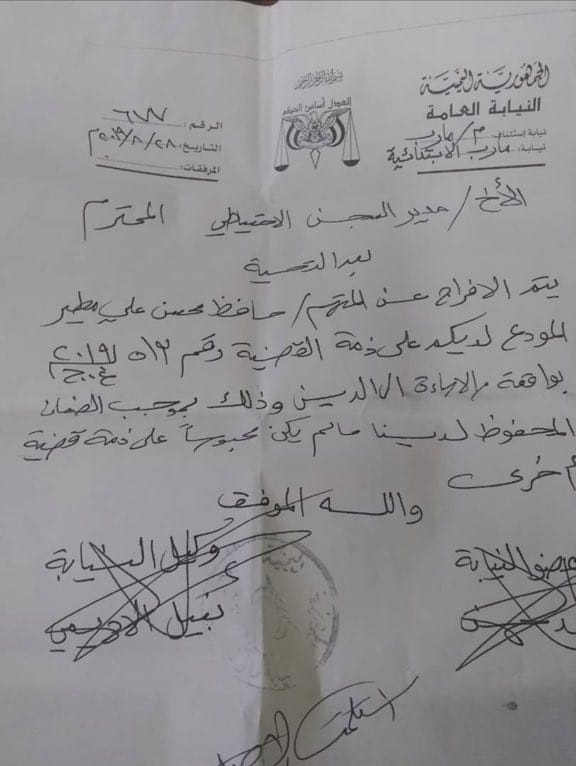 الجمهورية اليمنية
النيابة العامة
نيابة إستئناف: م/مارب
نيابة: مارب الابتدائية
العدل أساس الحكم
الرقم: ٦٧٧
التاريخ: ٢٨/٨/٢٠١٩م
المرفقات:
الأخ/ مدير السجن الاحتياطي المحترم
بعد التحية
يتم الافراج عن المتهم/ حافظ محسن علي مطير
المودع لديكم على ذمة القضية رقم ٥١٣ لـ ٢٠١٩ غ.ج.م
بواقعة الاساءة الى الدين وذلك بموجب الضمان
المحفوظ لدينا مالم يكن محبوساً على ذمة قضية
أخرى
والله الموفق
عضو النيابة وكيل النيابة
نبيل